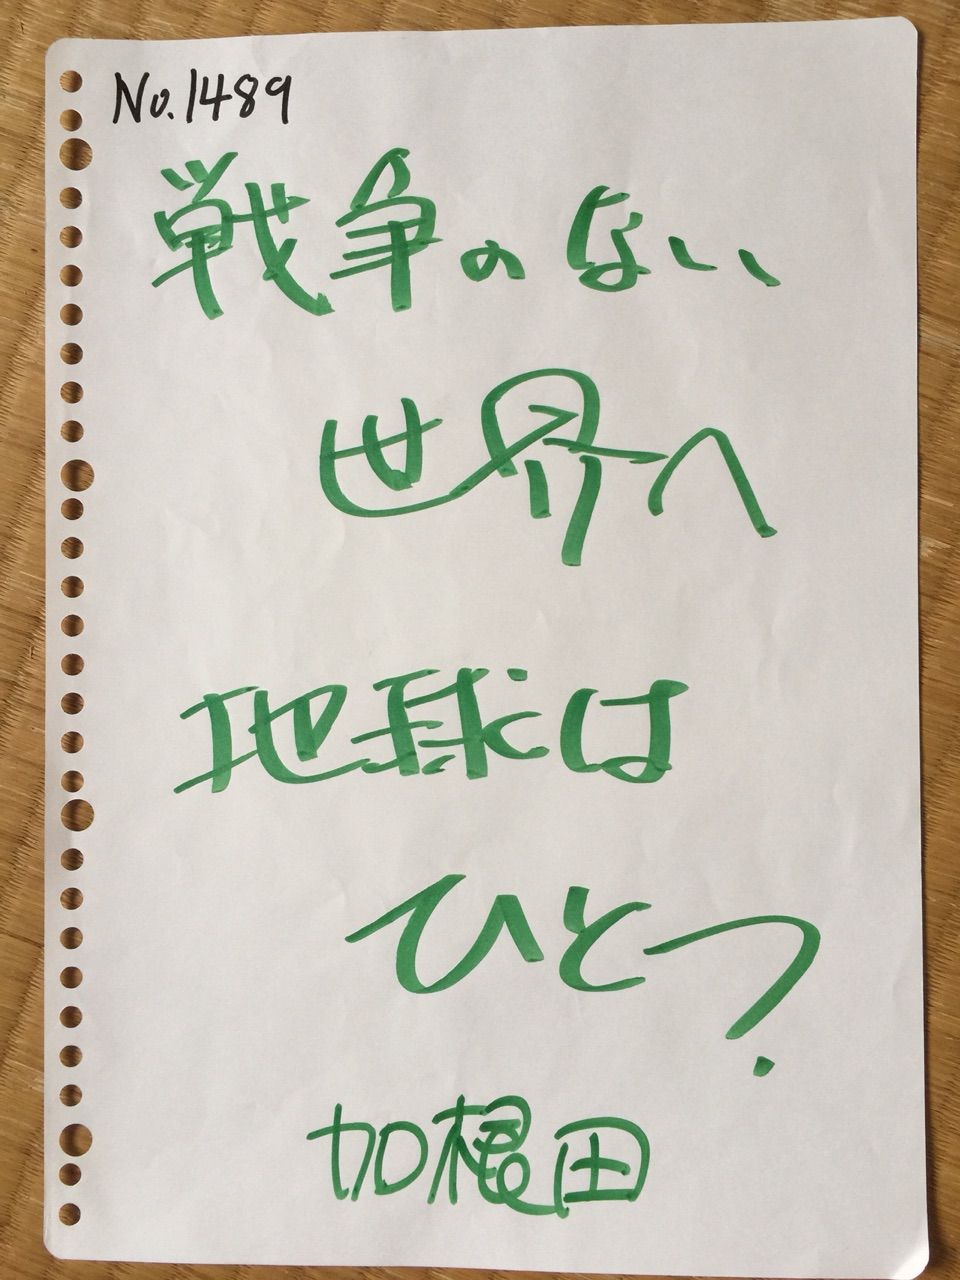 No.1489
戦争のない
世界へ
地球は
ひとつ.
加根田